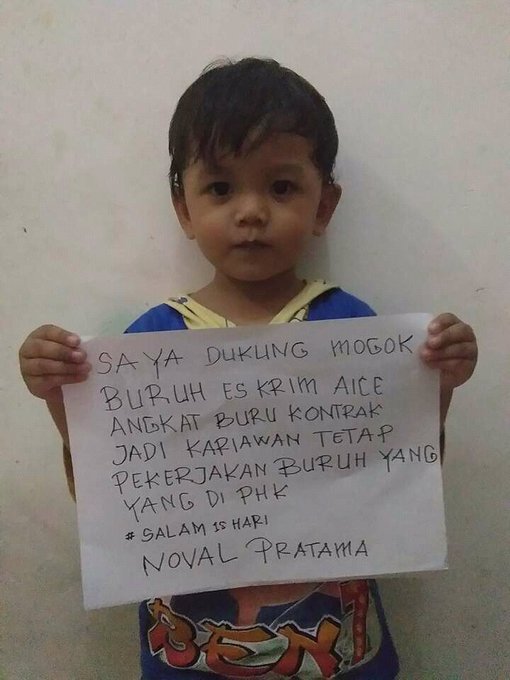 SAYA DUKUNG MOGOK
BURUH ES KRIM AICE
ANGKAT BURU KONTRAK
JADI KARIAWAN TETAP
PEKERJAKAN BURUH YANG
YANG DI PHK
# SALAM 15 HARI
NOVAL PRATAMA
BEN